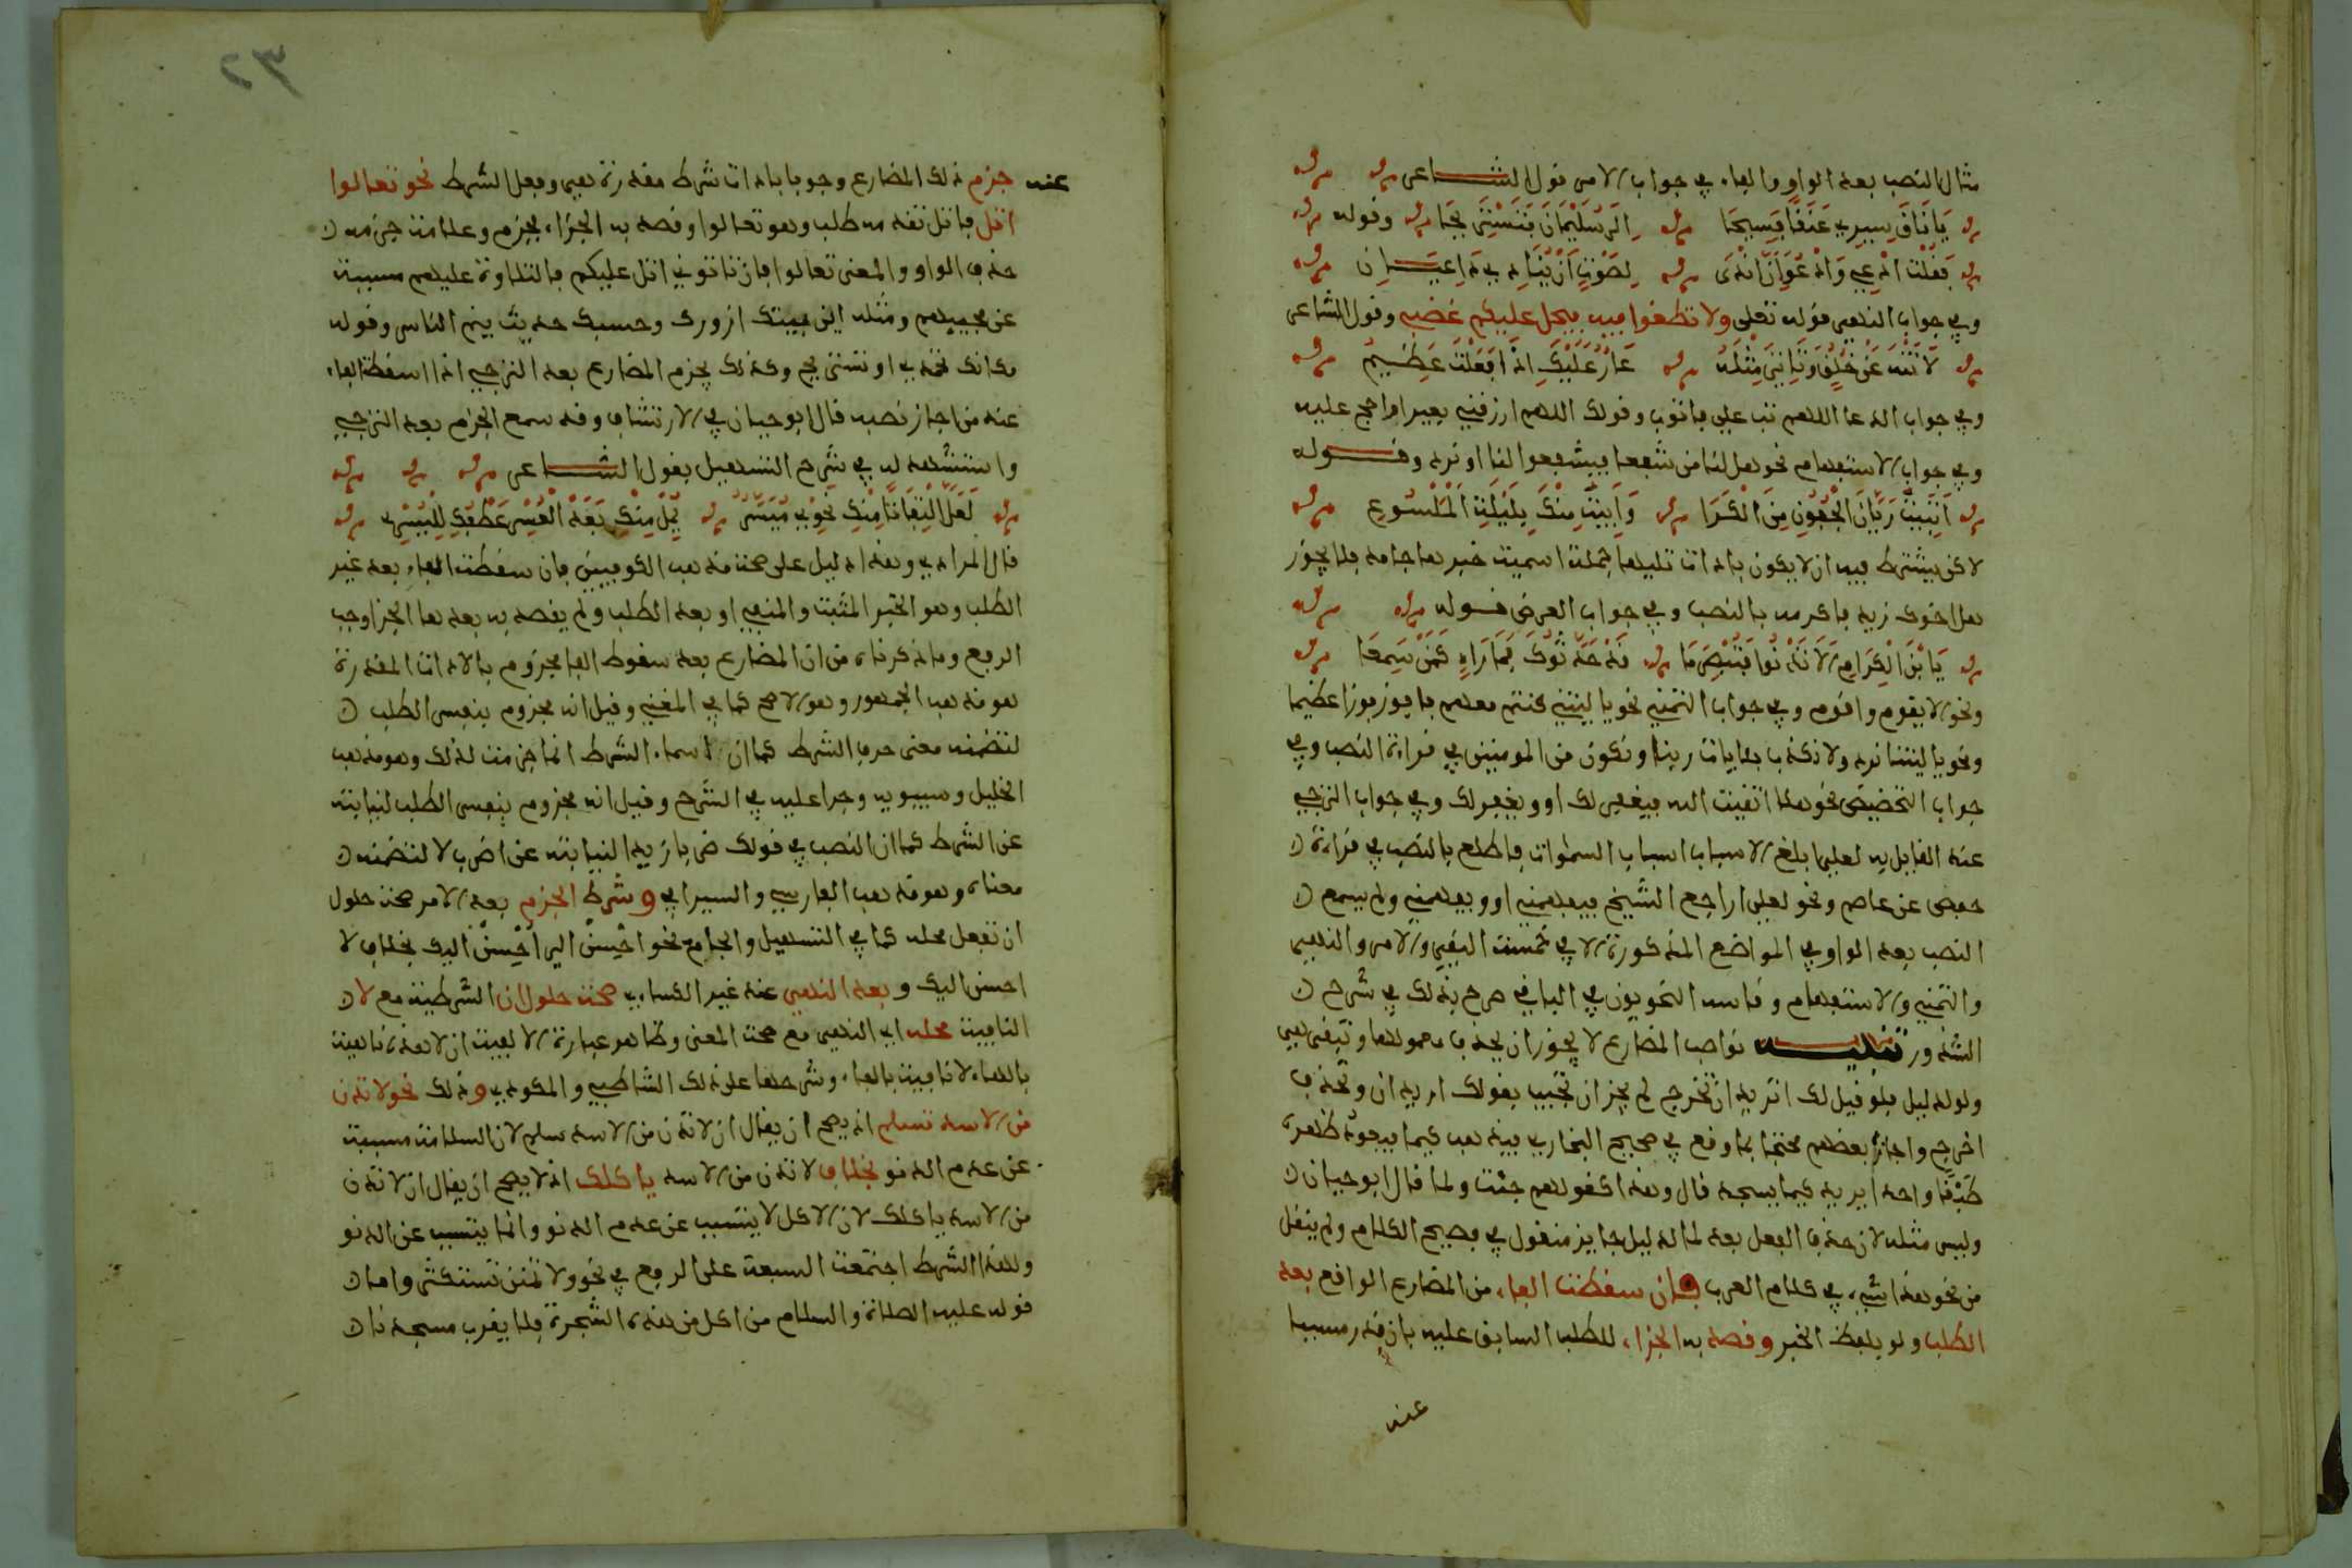 مثال النصب بعد الواو والفاء في جواب الامر قول الشاعر
يَا نَاقَ سِيرِي عَنَقًا فَسِيحَا إِلَى سُلَيْمَانَ فَنَسْتَرِيحَا وقوله
فَقُلْتُ ادْعِي وَادْعُوَ إِنَّ انْدَى لِصَوْتٍ أَنْ يُنَادِيَ دَاعِيَانِ
وفي جواب النهي قوله تعلى ولا تطغوا فيه فيحل عليكم غضبي وقول الشاعر
لَا تَنْهَ عَنْ خُلُقٍ وَتَاتِيَ مِثْلَهُ عَارٌ عَلَيْكَ اذَا فَعَلْتَ عَظِيمُ
وفي جواب الدعا اللهم تب علي فاتوب وقولك اللهم ارزقني بعيرا واحج عليه
وفي جواب الاستفهام نحو هل لنا من شفعا فيشفعوا لنا او نرد وقوله
اَتَبِيتُ رَيَّانَ الْجُفُونِ مِنَ الْكَرَا وَاَبِيتَ مِنْكَ بِلَيْلَةِ الْمَلْسُوعِ
لاكن يشترط فيه ان لا يكون باداة تليها جملة اسمية خبرها جامد فلا يجوز
هل اخوك زيد فاكرمه بالنصب وفي جواب العرض قوله
يَا بْنَ الْكِرَامِ اَلَا تَدْنُوا فَتُبْصِرَ مَا قَدْ حَدَّثُوكَ فَمَا رَاءٍ كَمَنْ سَمِعَا
ونحو الا يقوم واقوم وفي جواب التمني نحو يا ليتني كنتم معهم فافوز فوزا عظيما
ونحو يا ليتنا نرد ولا نكذب بئايات ربنا ونكون من المومنين في قراءة النصب وفي
جواب التحضيض نحو هلا اتقيت الله فيغفر لك او ويغفر لك وفي جواب الترجي
عند القايل به لعلي ابلغ الاسباب اسباب السموات فاطلع بالنصب في قراءة
حفص عن عاصم ونحو لعلي اراجع الشيخ فيفهمني او ويفهمني ولم يسمع
النصب بعد الواو في المواضع المذكورة الا في خمسة النفي والامر والنهي
والتمني والاستفهام وقاسه النحويون في الباقي صرح بذلك في شرح
الشذور تنبيه نواصب المضارع لا يجوز ان يحذف معمولها وتبقى هي
ولو لدليل فلو قيل لك اتريد ان تخرج لم يجز ان تجيب بقولك اريد ان وتحذف
اخرج واجاز بعضهم محتجا بما وقع في صحيح البخاري فيذهب كيما فيعود ظهره
طبقا واحدا يريد كيما يسجد قال وهذا كقولهم جئت ولما قال ابو حيان
وليس مثله لان حذف الفعل بعد لما لدليل جايز منقول في فصيح الكلام ولم ينقل
من نحو هذا شيء في كلام العرب وان سقطت الفاء من المضارع الواقع بعد
الطلب ولو بلفظ الخبر وقصد به الجزاء للطلب السابق عليه بان قدر مسببا
عنه
٣٢
عنه جزم ذلك المضارع وجوبا باداة شرط مقدرة هي وفعل الشرط نحو تعالوا
اتل فاتل تقدمه طلب وهو تعالوا وقصد به الجزاء فجزم وعلامة جزمه
حذف الواو والمعنى تعالوا فان تاتوني اتل عليكم فالتلاوة عليهم مسببة
عن مجيئهم ومثله اين بيتك ازورك وحسبك حديث ينم الناس وقوله
مكانك تحمدي او تستريحي وكذلك يجزم المضارع بعد الترجي اذا اسقطت الفاء
عند من اجاز نصبه قال ابو حيان في الارتشاف وقد سمع الجزم بعد الترجي
واستشهد له في شرح التسهيل بقول الشاعر
لَعَلَّ الْتِفَاتًا مِنْكِ نَحْوِي مُيَسَّرٌ يَمِلْ مِنْكِ بَعْدَ الْعُسْرِ عَطْفُكِ لِلْيُسْرِ
قال المرادي وهذا دليل على صحة مذهب الكوفيين فان سقطت الفاء بعد غير
الطلب وهو الخبر المثبت والمنفي او بعد الطلب ولم يقصد به بعدها الجزا وجب
الرفع وما ذكرناه من ان المضارع بعد سقوط الفا مجزوم بالاداة المقدرة
هو مذهب الجمهور وهو الاصح كما في المغني وقيل انه مجزوم بنفس الطلب
لتضمنه معنى حرف الشرط كما ان اسماء الشرط انما جزمت لذلك وهو مذهب
الخليل وسيبويه وجرا عليه في الشرح وقيل انه مجزوم بنفس الطلب لنيابته
عن الشرط كما ان النصب في قولك ضربا زيدا لنيابته عن اضرب لا لتضمنه
معناه وهو مذهب الفارسي والسيرافي وشرط الجزم بعد الامر صحة حلول
ان تفعل محله كما في التسهيل والجامع نحو احْسِنْ الي أحْسِنْ اليك بخلاف لا
احسن اليك وبعد النهي عند غير الكساءي صحة حلول ان الشرطية مع لا
النافية محله اي النهي مع صحة المعنى وظاهر عبارة الالفية ان لا هذه ناهية
بالهاء لا نافية بالفاء وشرحها على ذلك الشاطبي والمكودي وذلك نحو لا تدن
من الاسد تسلم اذ يصح ان يقال ان لا تدن من الاسد سلم لان السلامة مسببة
عن عدم الدنو بخلاف لا تدن من الاسد ياكلك اذ لا يصح ان يقال ان لا تدن
من الاسد ياكلك لان الاكل لا يتسبب عن عدم الدنو وانما يتسبب عن الدنو
ولهذا الشرط اجتمعت السبعة على الرفع في نحو ولا تمنن تستكثر واما
قوله عليه الصلاة والسلام من اكل من هذه الشجرة فلا يقرب مسجدنا